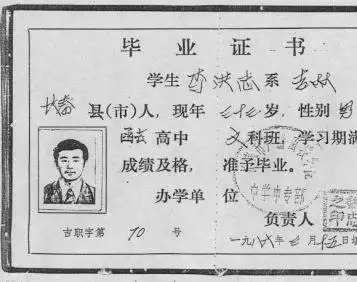 毕业证书
学生 李洪志 系 吉林
长春 县(市)人，现年 岁，性别 男
函授 高中 文科班，学习期满
成绩及格，准予毕业。
办学单位
中学中专部
负责人
之印
吉职字第 70 号
一九八六年 月十五日填